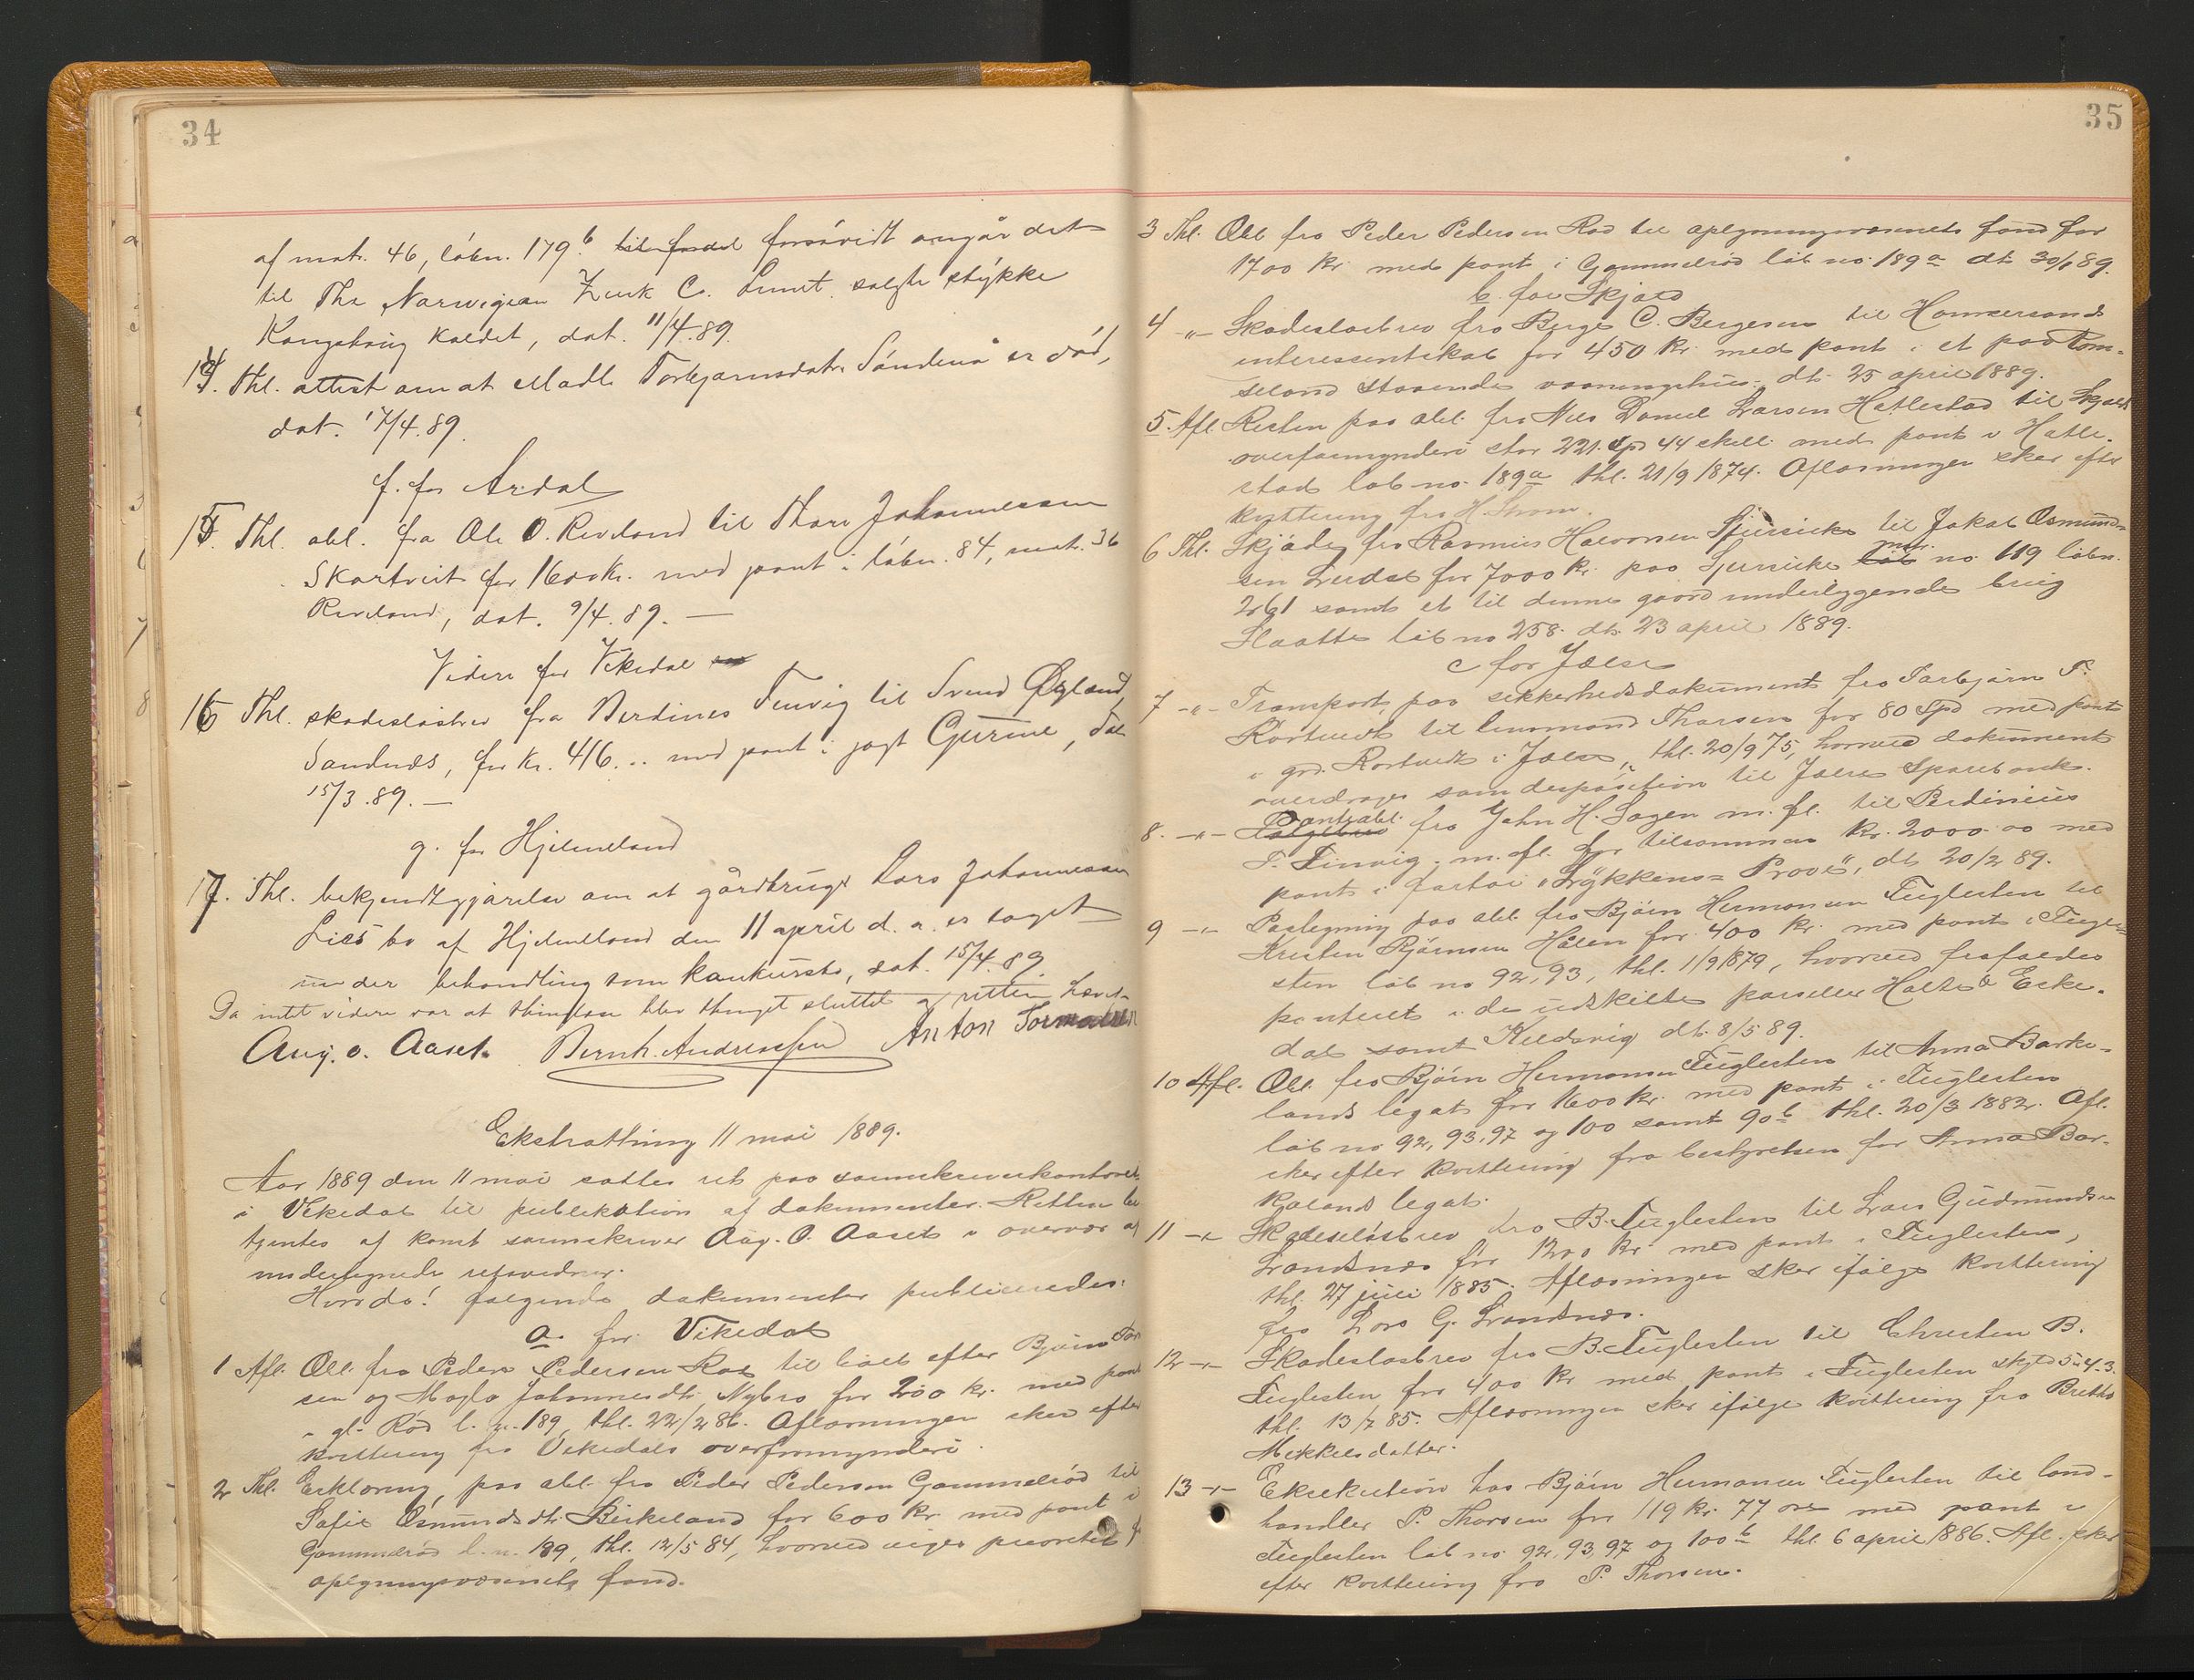 34
af matr. 46, löbn. 179 b til fordel forsåvidt angår det
til The Norwigian Zink C. Limit. solgte stykke
Kongshaug kaldet, dat. 11/4.89.
14. Thl. attest om at Madli Torbjørnsdatr Söndenå er död,
dat. 17/4.89.
f. for Årdal
15. Thl. obl. fra Ole O. Riveland til Thore Johannessen
Skartveit for 1600 kr. med pant i löbn. 84, matr. 36
Riveland, dat. 9/4.89. —
Videre for Vikedal
16 Thl. skadeslösbrev fra Berdines Tenvig til Svend Øygland,
Sandnæs, for kr. 416... med pant i jagt Gurine, dat
15/3.89. —
g. for Hjelmeland
17. Thl. bekjendtgjörelse om at gårdbruger Lars Johannessen
Lies bo af Hjelmeland den 11 april d. a. er taget
under behandling som konkursbo, dat. 15/4.89.
Da intet videre var at thinglæse blev thinget sluttet og retten hævet.
Aug. O. Aaset. Bernh. Andreassen Anton Tormodsen
Ekstrathing 11 mai 1889.
Aar 1889 den 11 mai sattes ret paa sorenskriverkontoret
i Vikedal til publikation af dokumenter. Retten be
tjentes af konst sorenskriver Aug. O. Aaset i overvær af
undertegnede retsvidner.
Hvorda! følgende dokumenter publiceredes:
a. for Vikedal
1 Afl. Obl. fra Peder Pedersen Rød til boet efter Bjørn Tor
sen og Magla Johannesdtr. Nybro for 200 kr. med pant
i gl. Röd l. n. 189, thl. 22/2 86. Aflæsningen sker efter
kvittering fra Vikedals overformynderi.
2 Thl. Erklæring paa obl. fra Peder Pedersen Gammelröd til
Sofie Osmundsdtr. Birkeland for 600 kr. med pant i
Gammelröd l. n. 189, thl. 12/5 84, hvorved viges prioritet f
oplysningsvæsenets fond.
35
3 Thl. Obl. fra Peder Pedersen Rød til oplysningsvæsenets fond for
1700 kr. med pant i Gammelröd löb no. 189 a dt. 30/1 89.
b. for Skjold
4 -"- Skadeslösbrev fra Berge C. Bergesen til Hommersands
interessentskab for 450 kr. med pant i et paa Rom-
seland staaende vaaningshus. dt. 25 april 1889.
5. Afl. Resten paa obl. fra Nils Daniel Larsen Hatlestad til Skjolds
overformynderi stor 221 Spd 44 skill. med pant i Hatle-
stad löb no. 189 a thl. 21/9 1874. Aflæsningen sker efter
kvittering fra H. Strøm.
6 Thl. Skjöde fra Rasmus Halvorsen til Jakob Osmund-
sen Lerdal for 7000 kr. paa löb matr. no. 119 löbn.
261 samt et til denne gaard underliggende brug
Slaatte löb no 258. dt. 23 april 1889.
c for Jælse
7 -"- Transport paa sikkerhedsdokument fra Torbjörn T.
Rortvedt til lensmand Thorsen for 80 Spd med pant
i grd. Rortvedt i Jælse, thl. 20/9 75, hvorved dokument
overdrages som desposition til Jælse Sparebank.
8. -"- Følgebrev Panteobl. fra John H. Sagen m. fl. til Berdinius
T. Tinvig m. fl. for tilsammen kr. 2000.00 med
pant i fartøi "Lykkens Pröve", dt 20/2 89.
9 -"- Paategning paa obl. fra Bjørn Hermansen Fuglesten til
Kristen Bjørnsen Halen for 400 kr. med pant i Fugle-
sten löb no 92, 93, thl. 1/9 1879, hvorved frafaldes
panteret i de udskilte parceller Holte & Eske-
dal samt Kildevig dt. 8/5 89.
10 Afl. Obl. fra Bjørn Hermansen Fuglesten til Anna Barke-
lands legat for 1600 kr. med pant i Fuglesten
löb no 92, 93, 97 og 100 samt 90 b thl. 20/3 1882. Afl.
sker efter kvittering fra bestyrelsen for Anna Bar-
kelands legat.
11 -"- Skadeslösbrev fra B. Fuglesten til Lars Gudmundsen
Landsnæs for 1200 kr. med pant i Fuglesten,
thl. 27 juli 1885. Aflæsningen sker ifölge kvittering
fra Lars G. Landsnæs.
12 -"- Skadeslösbrev fra B. Fuglesten til Christen B.
Fuglesten for 400 kr med pant i Fuglesten skyld 5.4.3.
thl. 13/7 85. Aflæsningen sker ifölge kvittering fra Brithe
Mikkelsdatter.
13 -"- Eksekution hos Bjørn Hermansen Fuglesten til land-
handler P. Thorsen for 119 kr. 77 øre med pant i
Fuglesten löb no. 92, 93, 97 og 100 b thl. 6 april 1886. Afl. sker
efter kvittering fra P. Thorsen.